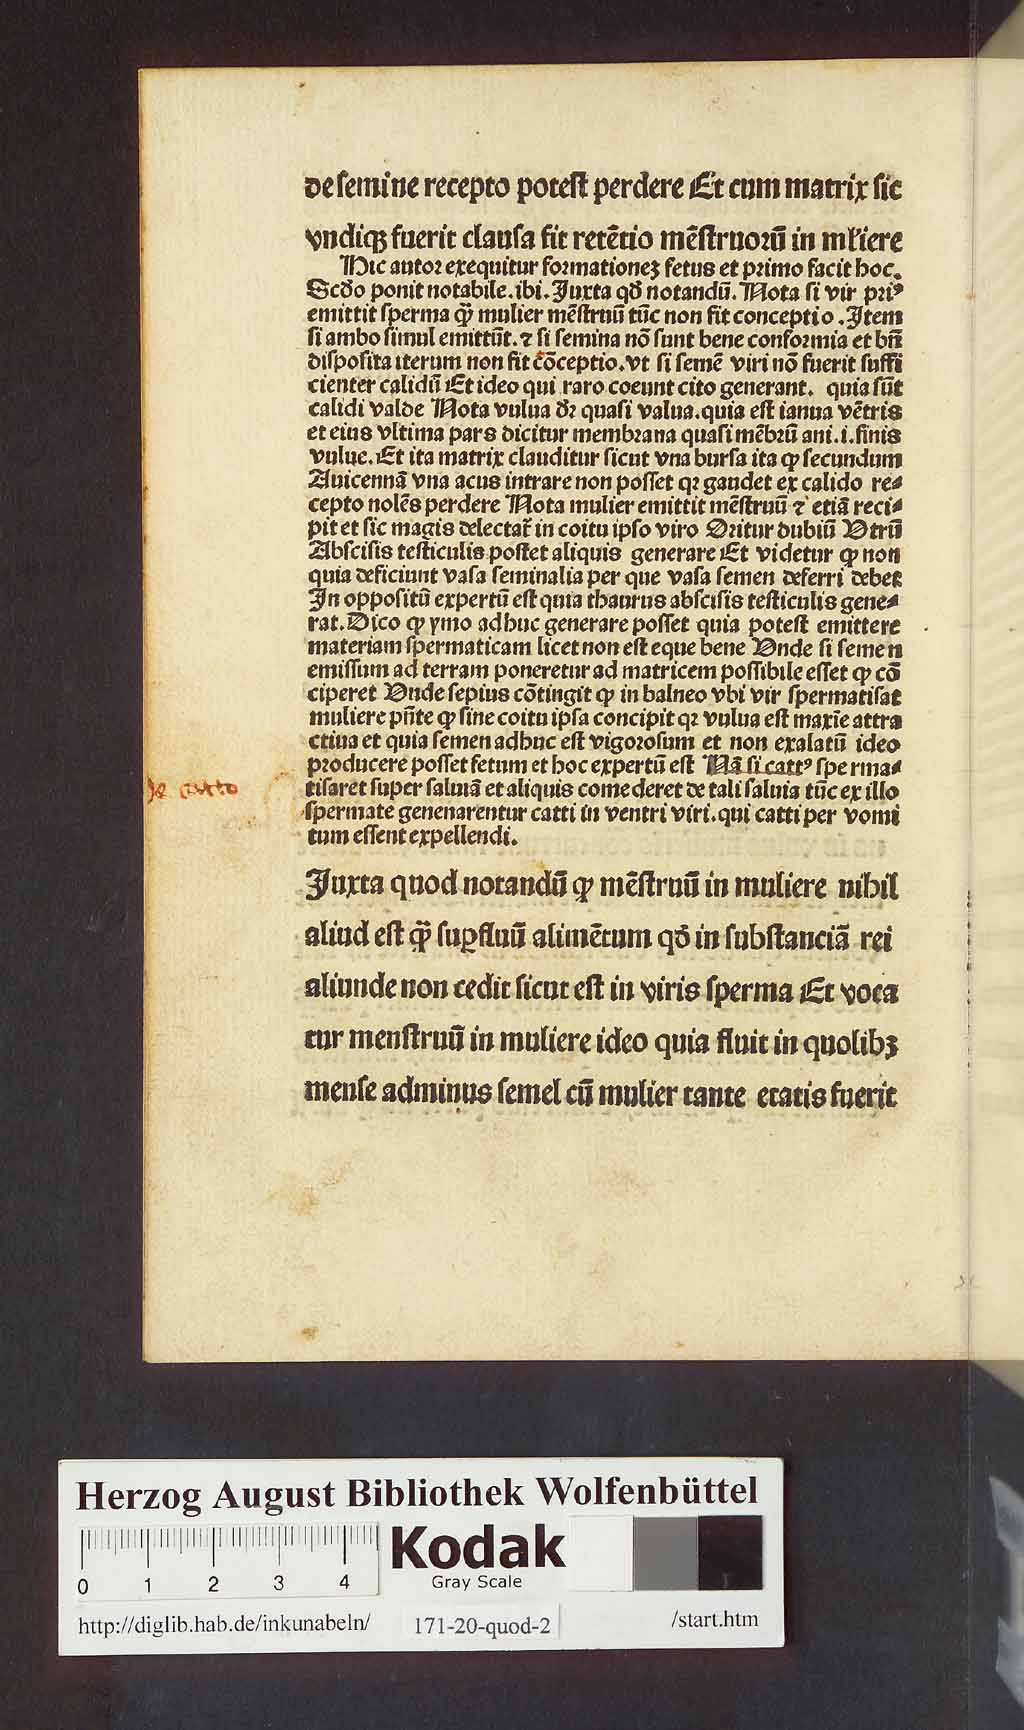 de semine recepto potest perdere Et cum matrix sic
vndiqꝫ fuerit clausa fit retētio mēstruoꝛū in mł'iere
Hic autoꝛ exequitur foꝛmationeꝫ fetus et pꝛimo facit hoc.
Scḋo ponit notabile.ibi.Juxta qḋ notandū. Nota si vir pꝛiꝰ
emittit sperma qꝫ̄ mulier mēstruū tūc non fit conceptio.Item
si ambo simul emittūt.⁊ si semina nō sunt bene confoꝛmia et bn̄
disposita iterum non fit cōceptio.vt si semē viri nō fuerit suffi
cienter calidū Et ideo qui raro coeunt cito generant. quia sūt
calidi valde Nota vulua dꝛ̄ quasi valua.quia est ianua vētris
et eius vltima pars dicitur membꝛana quasi mēbꝛū ani.i.finis
vulue.Et ita matrix clauditur sicut vna bursa ita ꝙ secundum
Auicennā vna acus intrare non posset qꝛ gaudet ex calido re⸗
cepto nolēs perdere Nota mulier emittit mēstruū ⁊ etiā reci⸗
pit et sic magis delectat̄ in coitu ipso viro Oꝛitur dubiū Vtrū
Abscisis testiculis posset aliquis generare Et videtur ꝙ non
quia deficiunt vasa seminalia per que vasa semen deferri debet
In oppositū expertū est quia thaurus abscisis testiculis gene⸗
rat.Dico ꝙ ymo adhuc generare posset quia potest emittere
materiam spermaticam licet non est eque bene Vnde si semen
emissum ad terram poneretur ad matricem possibile esset ꝙ cō
ciperet Vnde sepius cōtingit ꝙ in balneo vbi vir spermatisat
muliere pn̄te ꝙ sine coitu ipsa concipit qꝛ vulua est maxīe attra
ctiua et quia semen adhuc est vigoꝛosum et non exalatū ideo
producere posset fetum et hoc expertū est Nā si cattꝰ sperma⸗
de catto
tisaret super saluiā et aliquis comederet de tali saluia tūc ex illo
spermate genenarentur catti in ventri viri.qui catti per vomi
tum essent expellendi.
Juxta quod notandū ꝙ mēstruū in muliere nihil
aliud est qꝫ̄ suꝑfluū alimētum qḋ in substanciā rei
aliunde non cedit sicut est in viris sperma Et voca
tur menstruū in muliere ideo quia fluit in quolibꝫ
mense adminus semel cū mulier tante etatis fuerit
Herzog August Bibliothek Wolfenbüttel
0 1 2 3 4
Kodak
Gray Scale
http://diglib.hab.de/inkunabeln/ 171-20-quod-2 /start.htm